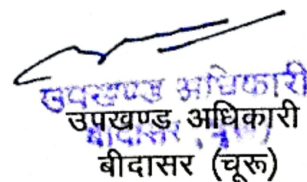 उपखण्ड अधिकारी
उपखण्ड अधिकारी
बीदासर (चूरू)